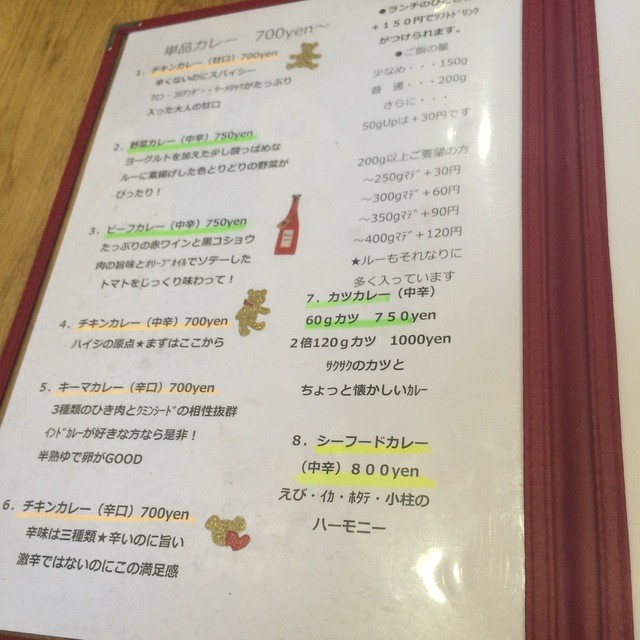 単品カレー 700yen～
1．チキンカレー（甘口）700yen
辛くないのにスパイシー
ｸﾐﾝ・ｺﾘｱﾝﾀﾞｰ・ﾀｰﾒﾘｯｸがたっぷり
入った大人の甘口
2．野菜カレー（中辛）750yen
ヨーグルトを加えた少し酸っぱめな
ルーに素揚げした色とりどりの野菜が
ぴったり！
3．ビーフカレー（中辛）750yen
たっぷりの赤ワインと黒コショウ
肉の旨味とｵﾘｰﾌﾞｵｲﾙでソテーした
トマトをじっくり味わって！
4．チキンカレー（中辛）700yen
ハイジの原点★まずはここから
5．キーマカレー（辛口）700yen
3種類のひき肉とｸﾐﾝｼｰﾄﾞの相性抜群
ｲﾝﾄﾞｶﾚｰが好きな方なら是非！
半熟ゆで卵がGOOD
6．チキンカレー（辛口）700yen
辛味は三種類★辛いのに旨い
激辛ではないのにこの満足感
●ランチのひと
＋１５０円でｿﾌﾄﾄﾞﾘﾝｸ
がつけられます。
●ご飯の量
少なめ・・・150g
普 通・・・200g
さらに・・・
50gUpは＋30円です
200g以上ご要望の方
～250gﾏﾃﾞ＋30円
～300gﾏﾃﾞ＋60円
～350gﾏﾃﾞ＋90円
～400gﾏﾃﾞ＋120円
★ルーもそれなりに
多く入っています
7．カツカレー（中辛）
60ｇカツ ７５０yen
２倍120ｇカツ 1000yen
ｻｸｻｸのカツと
ちょっと懐かしいｶﾚｰ
8．シーフードカレー
（中辛）８００yen
えび・ｲｶ・ﾎﾀﾃ・小柱の
ハーモニー